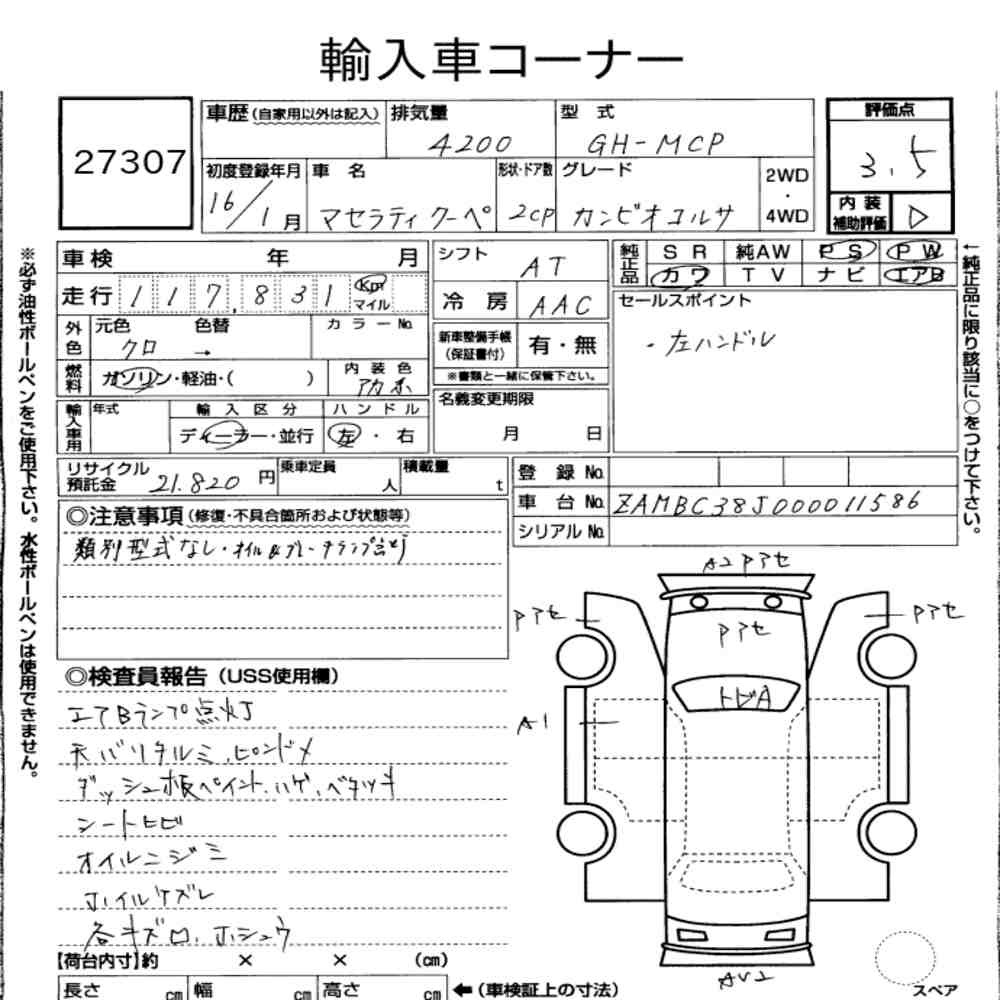 輸入車コーナー
27307
車歴(自家用以外は記入) 排気量 4200 型式 GH-MCP
評価点 3.5
初度登録年月 16/1月 車名 マセラティ クーペ 形状・ドア数 2CP グレード カンビオコルサ 2WD・4WD
内装補助評価 D
※必ず油性ボールペンをご使用下さい。水性ボールペンは使用できません。
車検 年 月
走行 117,831 Km マイル
外色 元色 クロ → 色替 カラーNo.
燃料 ガソリン・軽油・( ) 内装色 アカ
輸入車用 年式 輸入区分 ディーラー・並行 ハンドル 左・右
シフト AT
冷房 AAC
新車整備手帳(保証書付) 有・無
※書類と一緒に保管下さい。
名義変更期限 月 日
純正品 SR 純AW PS PW
カワ TV ナビ エアB
セールスポイント
・左ハンドル
←純正品に限り該当に○をつけて下さい。
リサイクル預託金 21.820円 乗車定員 人 積載量 t
登録No.
車台No. ZAMBC38J000011586
シリアルNo.
◎注意事項(修復・不具合箇所および状態等)
類別型式なし・オイル&ブレーキランプ
◎検査員報告(USS使用欄)
エアBランプ点灯
天バリタルミ、ピンドメ
ダッシュ板ペイントハゲ、ベタツキ
シートヒビ
オイルニジミ
ホイルケズレ
各キズロ、ホシュウ
A2 Pアセ
Pアセ
Pアセ
Pアセ
トビA
A1
AU2
スペア
【荷台内寸】約 × × (cm)
長さ cm 幅 cm 高さ cm ←(車検証上の寸法)